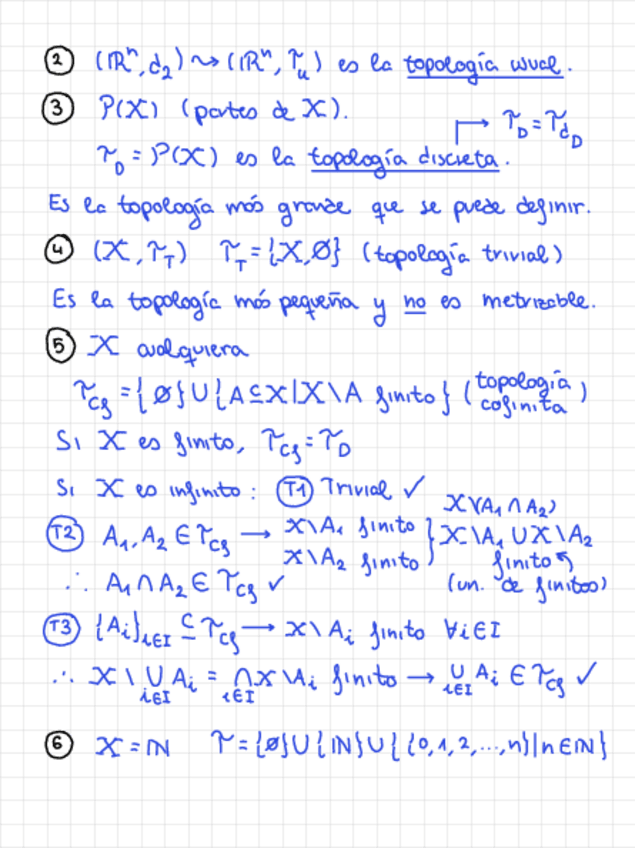 ② (ℝⁿ, d₂) ⇝ (ℝⁿ, 𝒯ᵤ) es la topología usual.
③ 𝒫(X) (partes de X).
↱ 𝒯_D = 𝒯_{d_D}
𝒯_D = 𝒫(X) es la topología discreta.
Es la topología más grande que se puede definir.
④ (X, 𝒯_T) 𝒯_T = {X, ∅} (topología trivial)
Es la topología más pequeña y no es metrizable.
⑤ X cualquiera
𝒯_{cf} = {∅} ∪ {A ⊆ X | X\A finito} (topología cofinita)
Si X es finito, 𝒯_{cf} = 𝒯_D
Si X es infinito: (T1) Trivial ✓
(T2) A₁, A₂ ∈ 𝒯_{cf} → X\A₁ finito
X\A₂ finito }
X\(A₁ ∩ A₂)
X\A₁ ∪ X\A₂
finito ↖
(un. de finitos)
∴ A₁ ∩ A₂ ∈ 𝒯_{cf} ✓
(T3) {A_i}_{i∈I} ⊆ 𝒯_{cf} → X\A_i finito ∀i∈I
∴ X \ ⋃_{i∈I} A_i = ⋂_{i∈I} X\A_i finito → ⋃_{i∈I} A_i ∈ 𝒯_{cf} ✓
⑥ X = ℕ 𝒯 = {∅} ∪ {ℕ} ∪ { {0,1,2,...,n} | n∈ℕ }